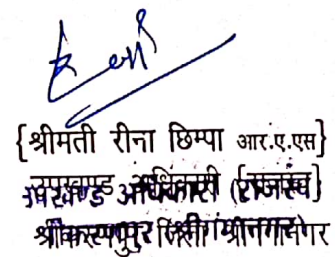 {श्रीमती रीना छिम्पा आर.ए.एस}
उपखण्ड अधिकारी (राजस्व)
श्रीकरणपुर श्रीगंगानगर